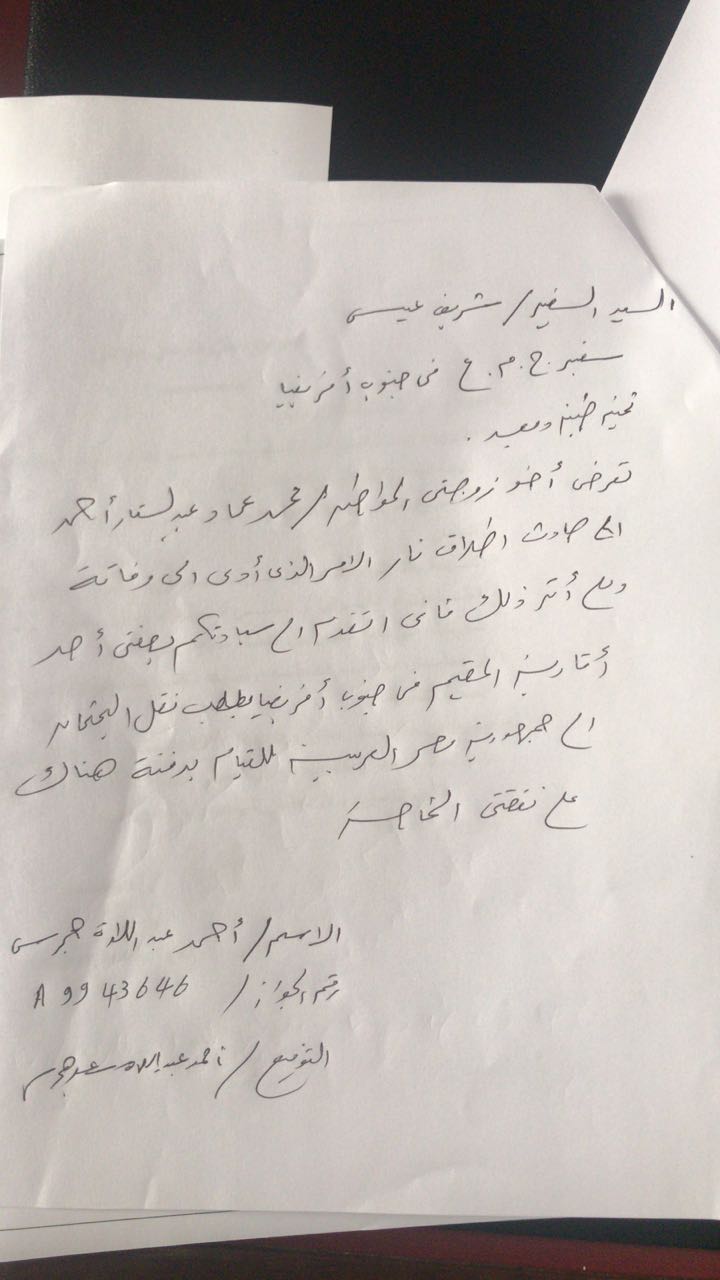 السيد السفير / شريف عيسى
سفير ج . م . ع فى جنوب أفريقيا
تحية طيبة وبعد .
تعرض أخو زوجتى المواطن / محمد عماد عبد الستار أحمد
الى حادث اطلاق نار الامر الذى أدى الى وفاتة
وعلى أثر ذلك فانى اتقدم الى سيادتكم بصفتى أحد
أقاربة المقيم فى جنوب أفريقيا بطلب نقل الجثمان
الى جمهورية مصر العربية للقيام بدفنة هناك
على نفقتى الخاصة
الاسم / أحمد عبد اللاة
رقم الجواز / A 9943646
التوقيع / أحمد عبد اللاة